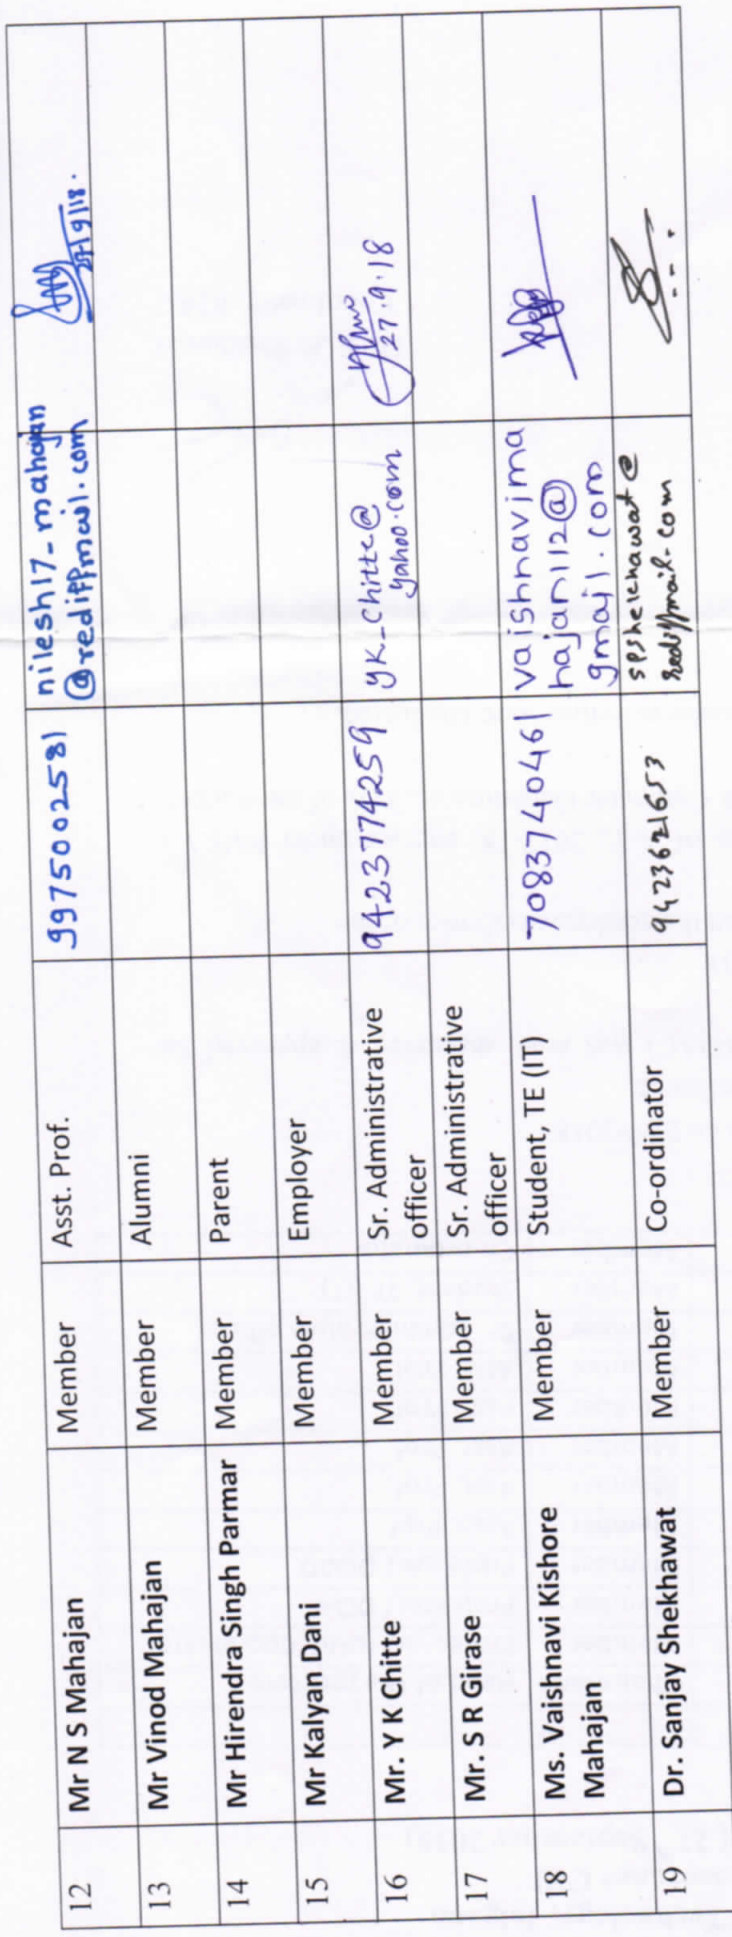 12 Mr N S Mahajan Member Asst. Prof. 9975002581 nilesh17_mahajan
@rediffmail.com 27/9/18.
13 Mr Vinod Mahajan Member Alumni
14 Mr Hirendra Singh Parmar Member Parent
15 Mr Kalyan Dani Member Employer
16 Mr. Y K Chitte Member Sr. Administrative 9423774259 yk_chitte@
officer yahoo.com 27.9.18
17 Mr. S R Girase Member Sr. Administrative
officer
18 Ms. Vaishnavi Kishore Member Student, TE (IT) 7083774046 vaishnavima
Mahajan hajan112@
gmail.com
19 Dr. Sanjay Shekhawat Member Co-ordinator 9423621653 spshekhawat@
rediffmail.com